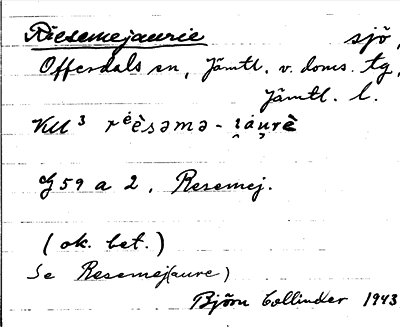 Riesemejaurie sjö,
Offerdals sn, Jämtl. v. doms. tg,
Jämtl. l.
KU3
G 59 a 2, Resemej.
(ok. bet.)
Se Resemej(aure)
Björn Collinder 1943